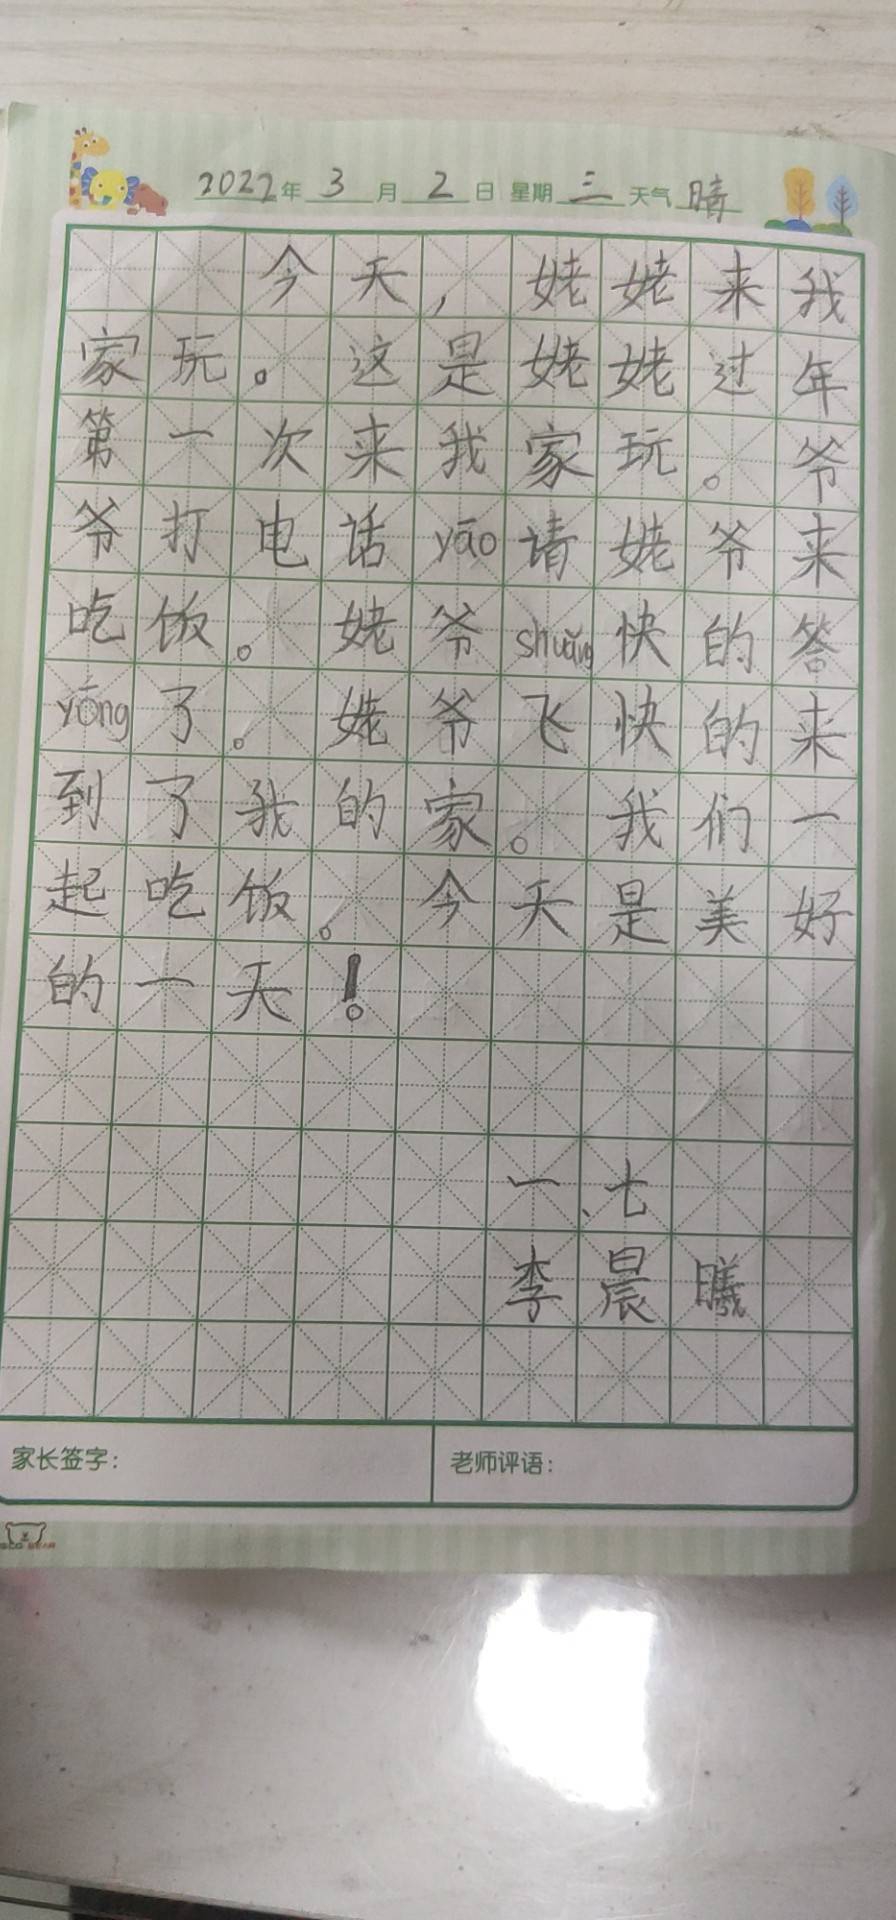 2022年3月2日 星期三 天气晴
今天，姥姥来我
家玩。这是姥姥过年
第一次来我家玩。爷
爷打电话yāo请姥爷来
吃饭。姥爷shuǎng快的答
yōng了。姥爷飞快的来
到了我的家。我们一
起吃饭。今天是美好
的一天！
一、七
李晨曦
家长签字：
老师评语：